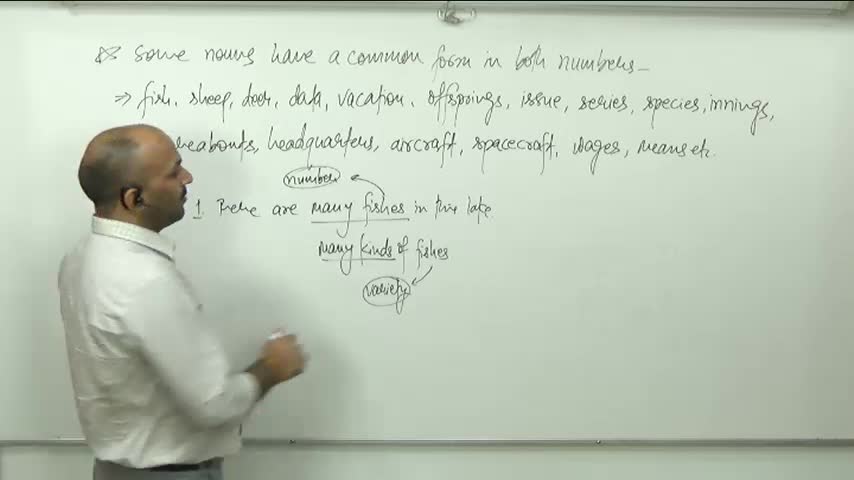 Some nouns have a common form in both numbers-
⇒ fish, sheep, deer, data, vacation, offsprings, issue, series, species, innings,
reabouts, headquarters, aircraft, spacecraft, wages, means etc.
number
1. There are many fishes in this lake.
many kinds of fishes
variety